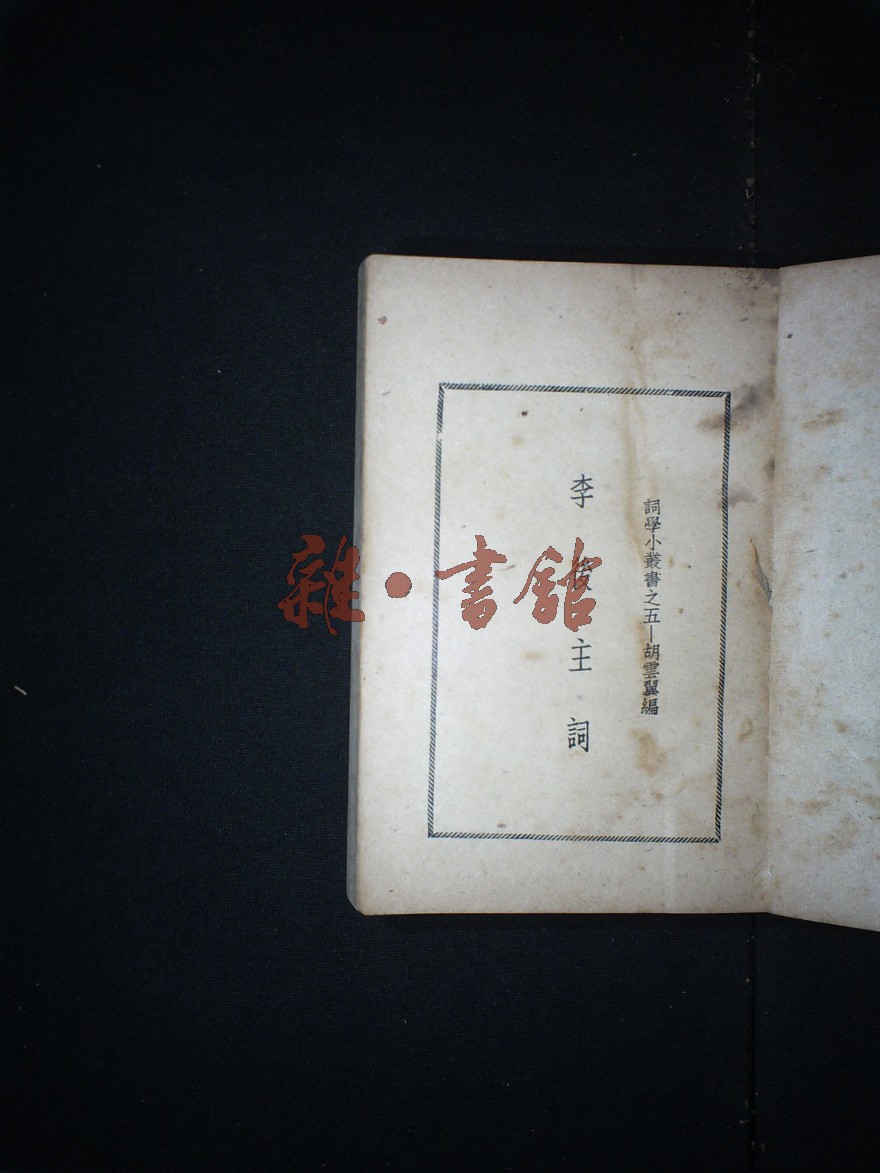 詞學小叢書之五—胡雲翼編
李後主詞
雜·書館